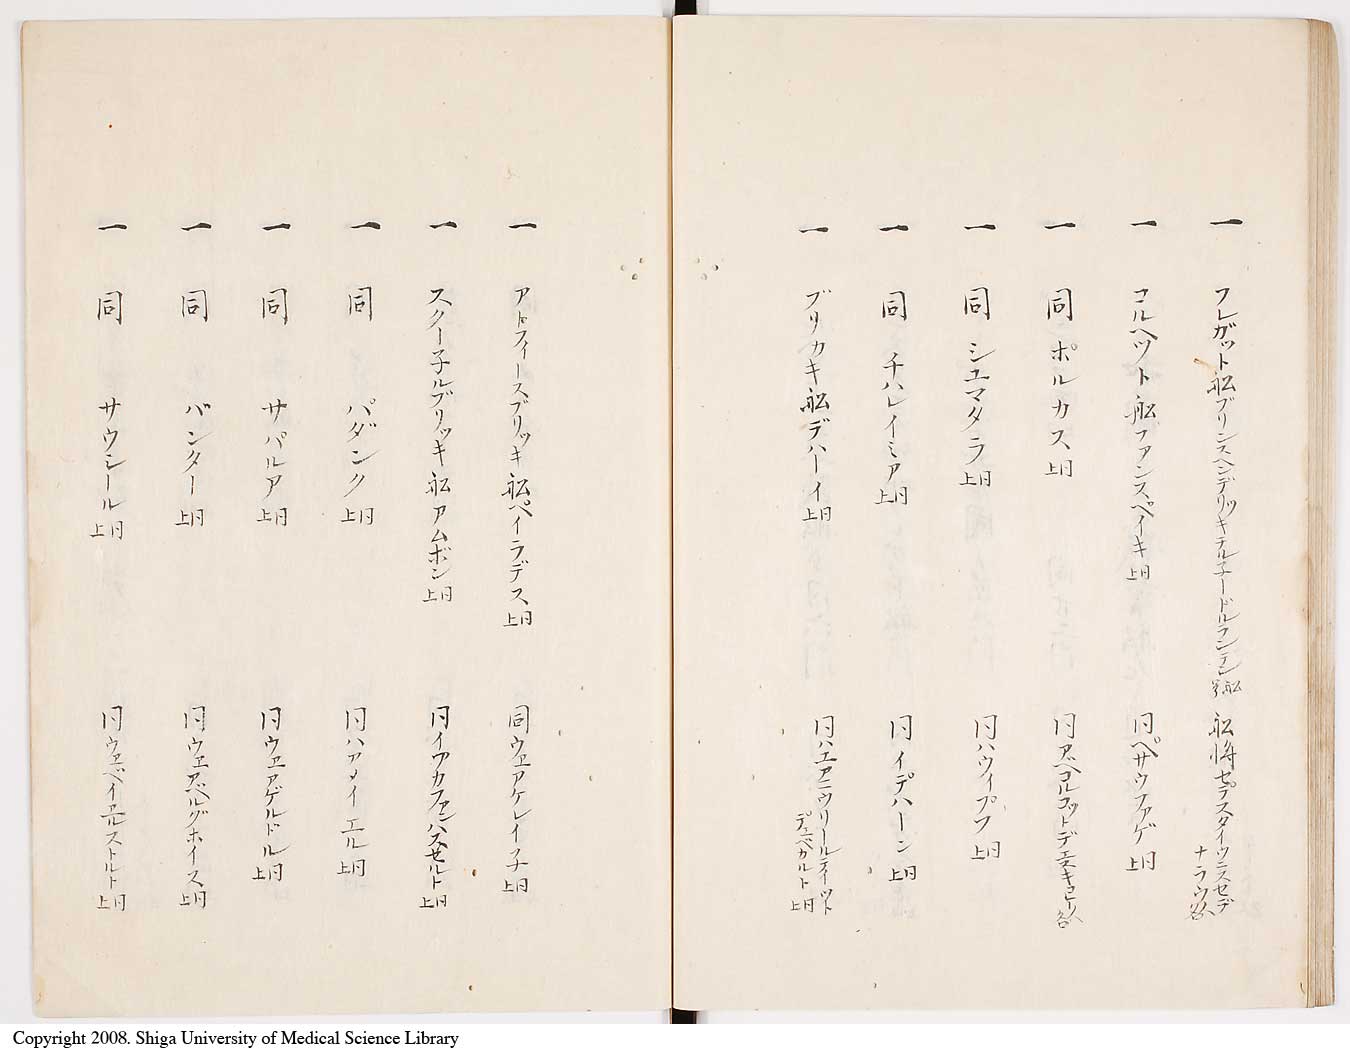 一 フレガット舩ブリンスヘンデリッキデルネードルランデン 舩号 舩将 セデスタイウニスセデ
ナラウ 人名
一 コルヘット舩ファンスペイキ 同上 同 ベサウファゲ 同上
一 同 ボルカス 同上 同 アヘコルコットデエスキュピリ 人名
一 同 シユマタラ 同上 同 ハウイプフ 同上
一 同 チハレイミア 同上 同 イデハーン 同上
一 ブリカキ舩デハーイ 同上 同 ハエアニウリールティット
デュベガルト 同上
一 アトフィースブリッキ舩ペイラデス 同上 同 ウヱアケレイ子 同上
一 スクー子ルブリッキ舩アムボン 同上 同 イアカファンハスセルト 同上
一 同 パダンク 同上 同 ハアメイエル 同上
一 同 サパルア 同上 同 ウヱアゲルドル 同上
一 同 バンタ― 同上 同 ウヱアベルグホイス 同上
一 同 サウシール 同上 同 ウヱベイエルストルト 同上
Copyright 2008. Shiga University of Medical Science Library